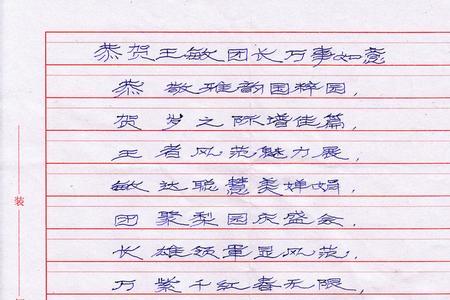 恭贺王敏团长万事如意
恭敬雅韵国粹园,
贺岁之际增佳篇,
王者风范魅力展,
敏达聪慧美婵娟,
团聚梨园庆盛会,
长雄领军显风范,
万紫千红春无限,
装